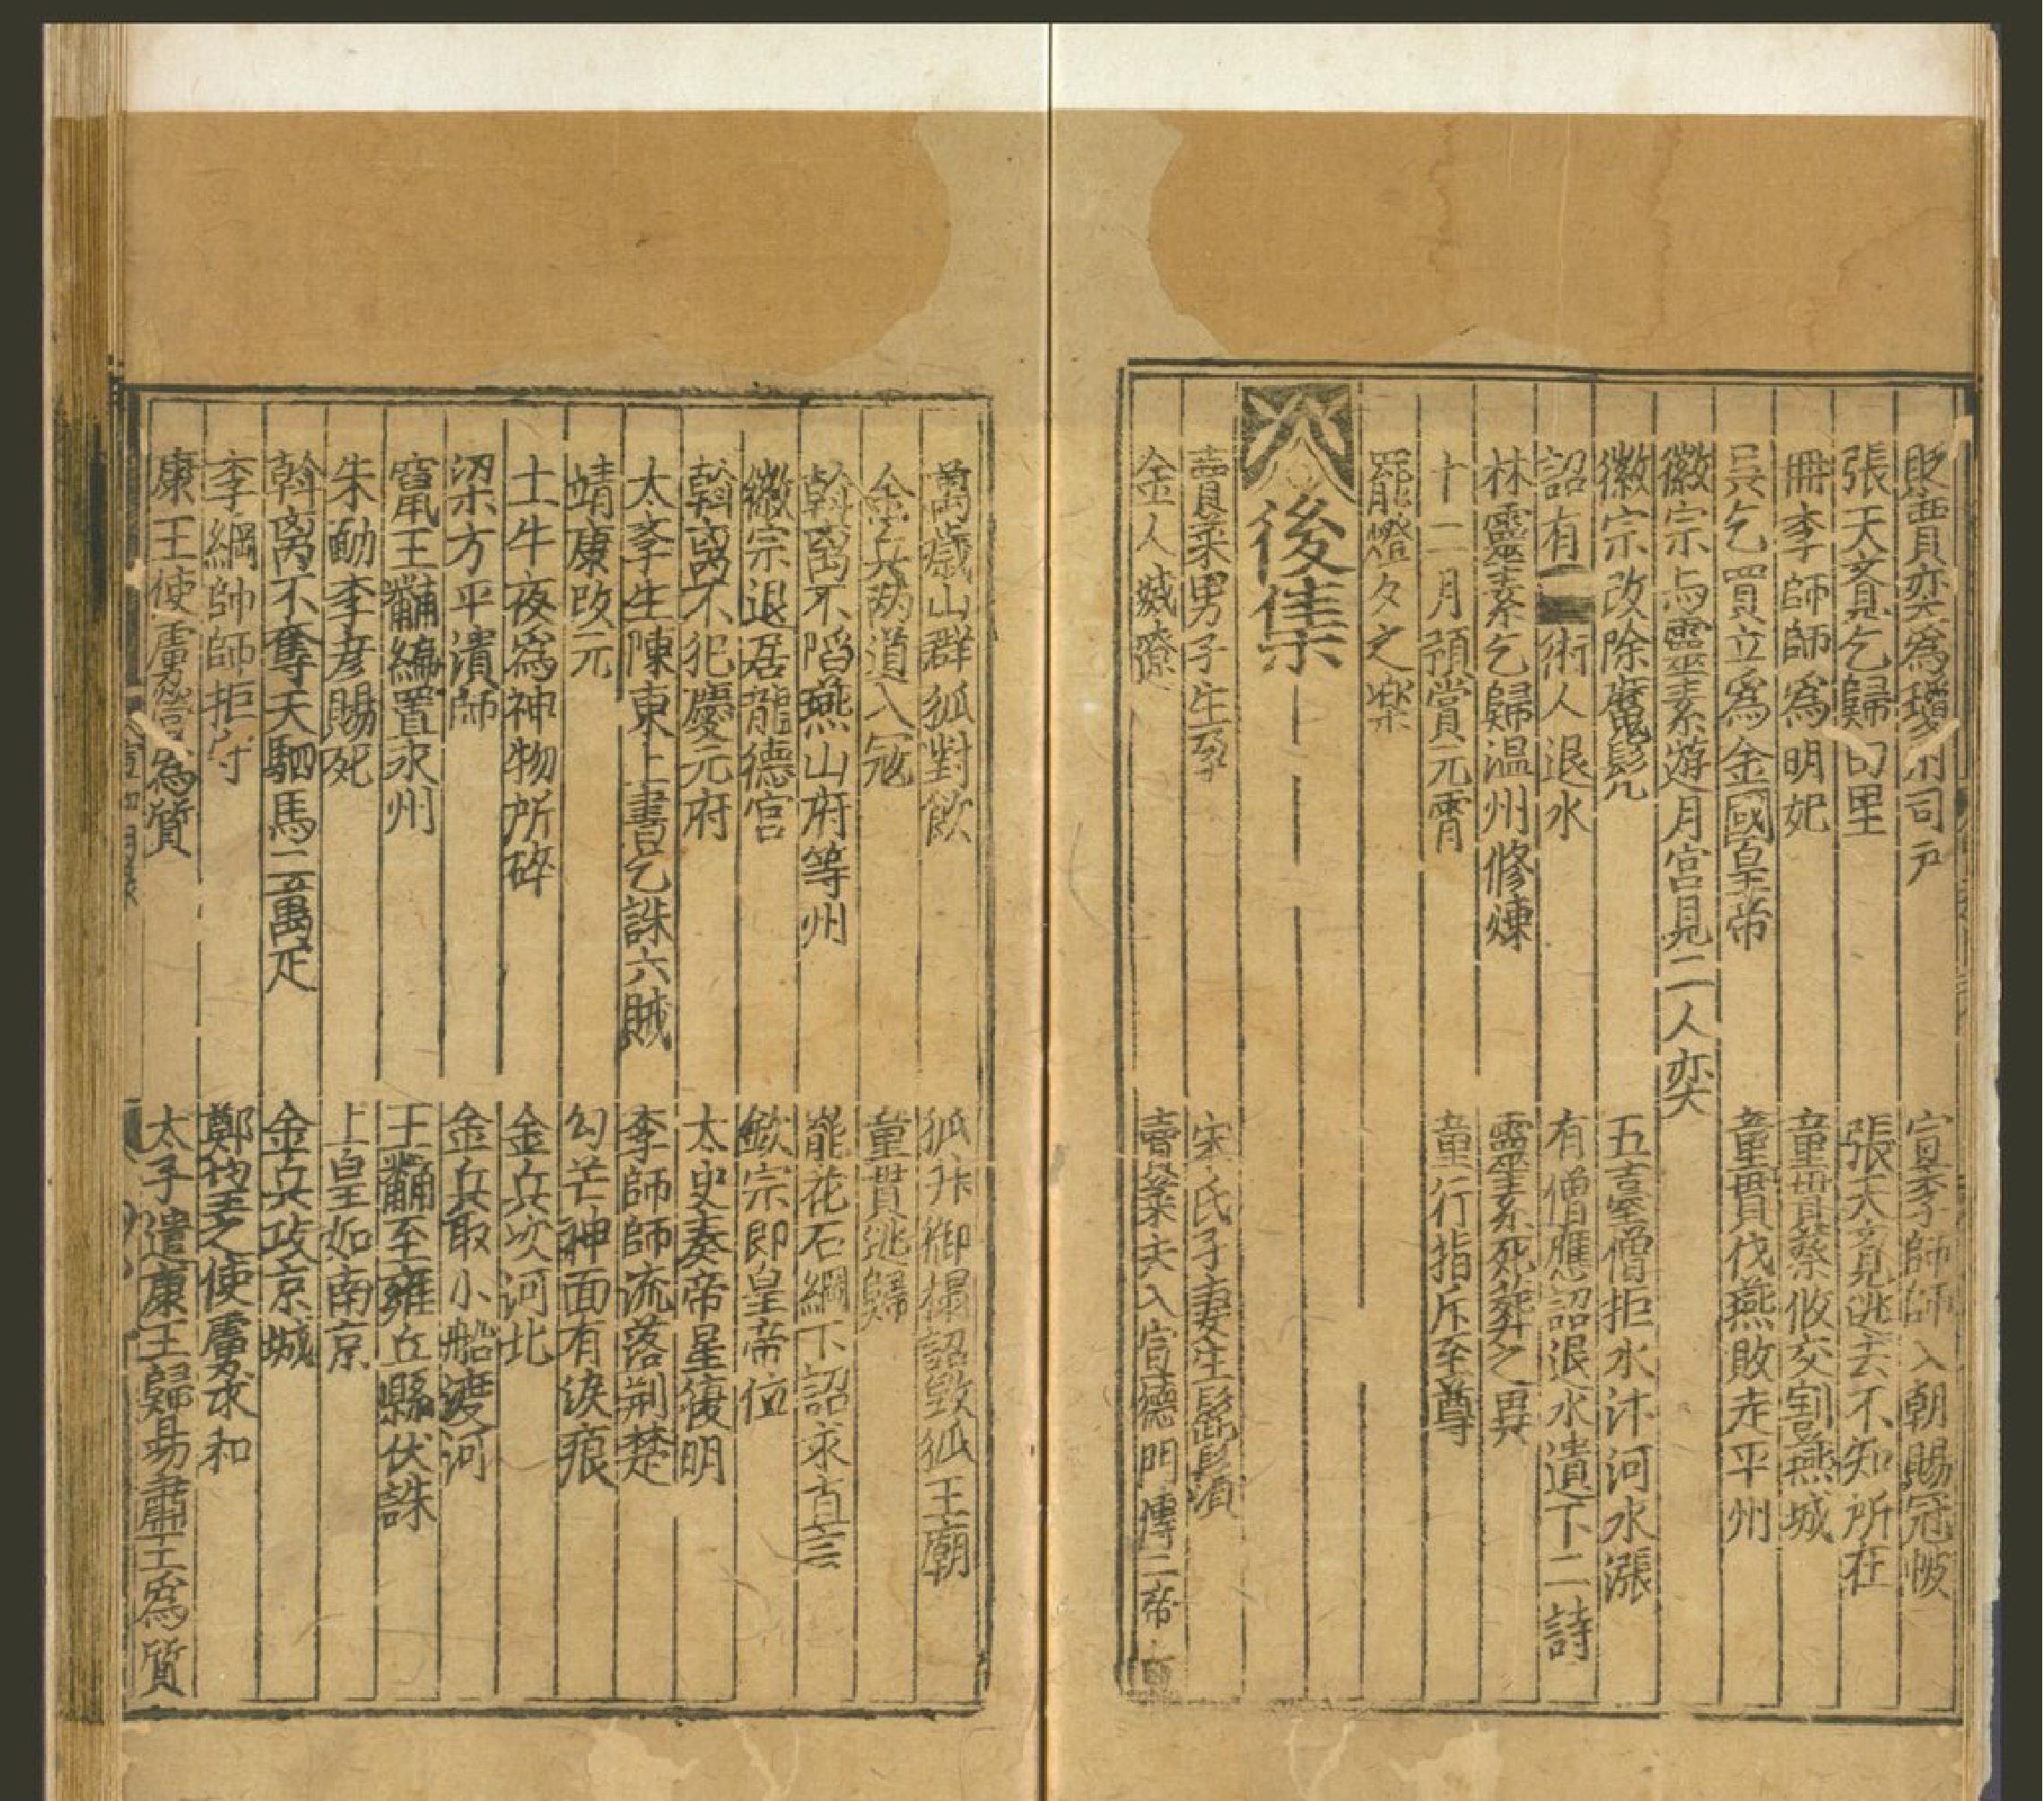 貶賈奕為瓊州司戶
宣李師師入朝賜冠帔
張天覺乞歸田里
張天覺逃去不知所在
冊李師師為明妃
童貫蔡攸交割燕城
吳乞買立為金國皇帝
童貫伐燕敗走平州
徽宗与靈素遊月宮見二人奕
徽宗改除魔髡
五臺僧拒水汴河水漲
詔有術人退水
有僧應詔退水遺下二詩
林靈素乞歸温州修煉
靈素死葬之異
十二月預賞元霄
童行指斥至尊
罷燈夕之樂
後集
賣菓男子生孕
朱氏子妻生髭鬚
金人滅遼
賣菜夫入宣德門傳二帝
萬歲山群狐對飲
狐升御榻詔毀狐王廟
金兵兩道入冦
童貫逃歸
斡离不䧟燕山府等州
罷花石綱下詔求直言
徽宗退居龍德宮
欽宗即皇帝位
斡离不犯慶元府
太史奏帝星復明
太李生陳東上書乞誅六賊
李師師流落荆楚
靖康改元
勾芒神面有淚痕
土牛夜為神物所碎
金兵次河北
梁方平潰師
金兵取小船渡河
竄王黼編置永州
王黼至雍丘縣伏誅
朱勔李彦賜死
上皇如南京
斡离不奪天駟馬二萬疋
金兵攻京城
李綱帥師拒守
鄭望之使虜求和
康王使虜營為質
太子遣康王歸易肅王為質